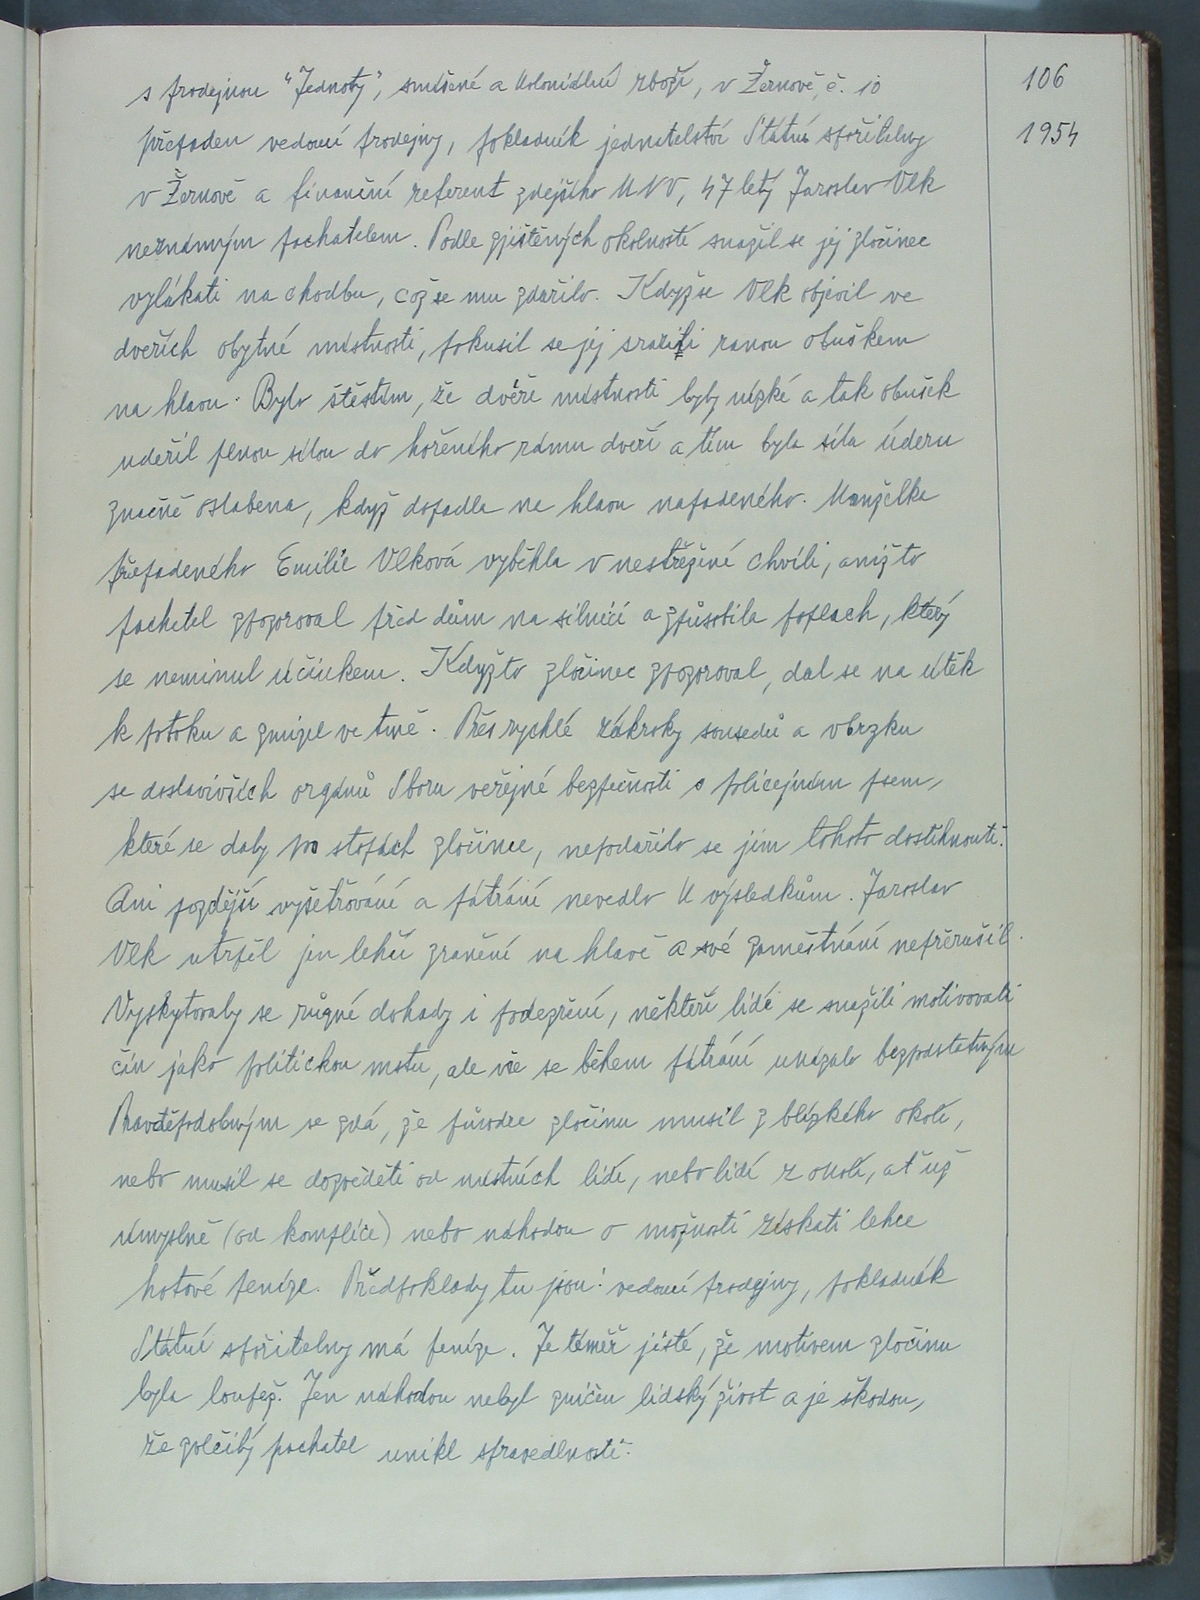 s prodejnou "Jednoty", smíšené a koloniální zboží, v Žernově, č. 10
106
přepaden vedoucí prodejny, pokladník jednatelství Státní spořitelny
1954
v Žernově a finanční referent zdejšího MNV, 47 letý Jaroslav Vlk
neznámým pachatelem. Podle zjištěných okolností snažil se jej zločinec
vylákati na chodbu, což se mu zdařilo. Když se Vlk objevil ve
dveřích obytné místnosti, pokusil se jej sraziti ranou obuškem
na hlavu. Bylo štěstím, že dvéře místnosti byly nízké a tak obušek
udeřil plnou silou do hořeního rámu dveří a tím byla síla úderu
značně oslabena, když dopadla na hlavu napadeného. Manželka
přepadeného Emilie Vlková vyběhla v nestřežené chvíli, aniž to
pachatel zpozoroval před dům na silnici a způsobila poplach, který
se neminul účinkem. Když to zločinec zpozoroval, dal se na útěk
k potoku a zmizel ve tmě. Přes rychlé zákroky sousedů a vbrzku
se dostavivších orgánů Sboru veřejné bezpečnosti s policejním psem,
které se daly po stopách zločince, nepodařilo se jim tohoto dostihnouti.
Ani pozdější vyšetřování a pátrání nevedlo k výsledkům. Jaroslav
Vlk utrpěl jen lehčí zranění na hlavě a své zaměstnání nepřerušil.
Vyskytovaly se různé dohady i podezření, někteří lidé se snažili motivovati
čin jako politickou mstu, ale vše se během pátrání ukázalo bezpodstatným.
Pravděpodobným se zdá, že původce zločinu musil z blízkého okolí,
nebo musil se dozvěděti od místních lidí, nebo lidí z okolí, ať už
úmyslně (od komplice) nebo náhodou o možnosti získati lehce
hotové peníze. Předpoklady tu jsou: vedoucí prodejny, pokladník
Státní spořitelny má peníze. Je téměř jisté, že motivem zločinu
byla loupež. Jen náhodou nebyl zničen lidský život a je škodou,
že zločilý pachatel unikl spravedlnosti.